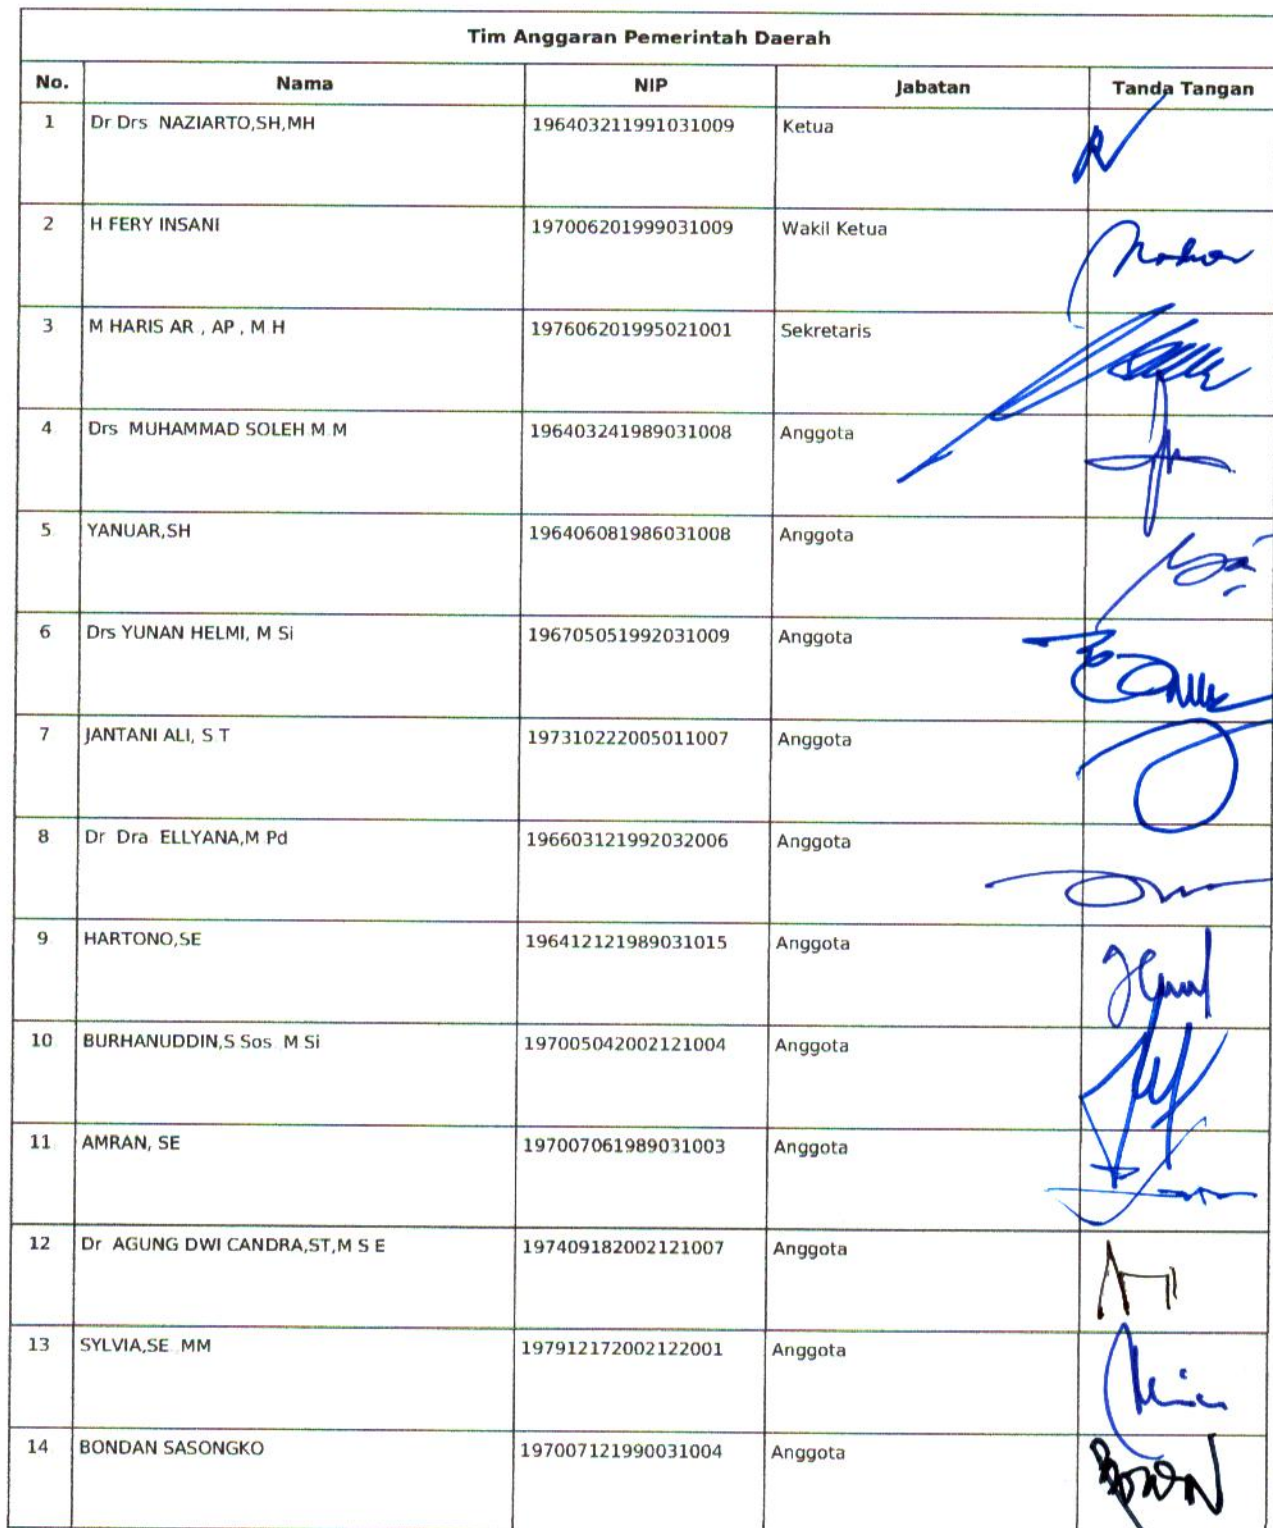 Tim Anggaran Pemerintah Daerah
No. Nama NIP Jabatan Tanda Tangan
1 Dr Drs NAZIARTO,SH,MH 196403211991031009 Ketua
2 H FERY INSANI 197006201999031009 Wakil Ketua
3 M HARIS AR , AP , M H 197606201995021001 Sekretaris
4 Drs MUHAMMAD SOLEH M M 196403241989031008 Anggota
5 YANUAR,SH 196406081986031008 Anggota
6 Drs YUNAN HELMI, M Si 196705051992031009 Anggota
7 JANTANI ALI, S T 197310222005011007 Anggota
8 Dr Dra ELLYANA,M Pd 196603121992032006 Anggota
9 HARTONO,SE 196412121989031015 Anggota
10 BURHANUDDIN,S Sos M Si 197005042002121004 Anggota
11 AMRAN, SE 197007061989031003 Anggota
12 Dr AGUNG DWI CANDRA,ST,M S E 197409182002121007 Anggota
13 SYLVIA,SE MM 197912172002122001 Anggota
14 BONDAN SASONGKO 197007121990031004 Anggota